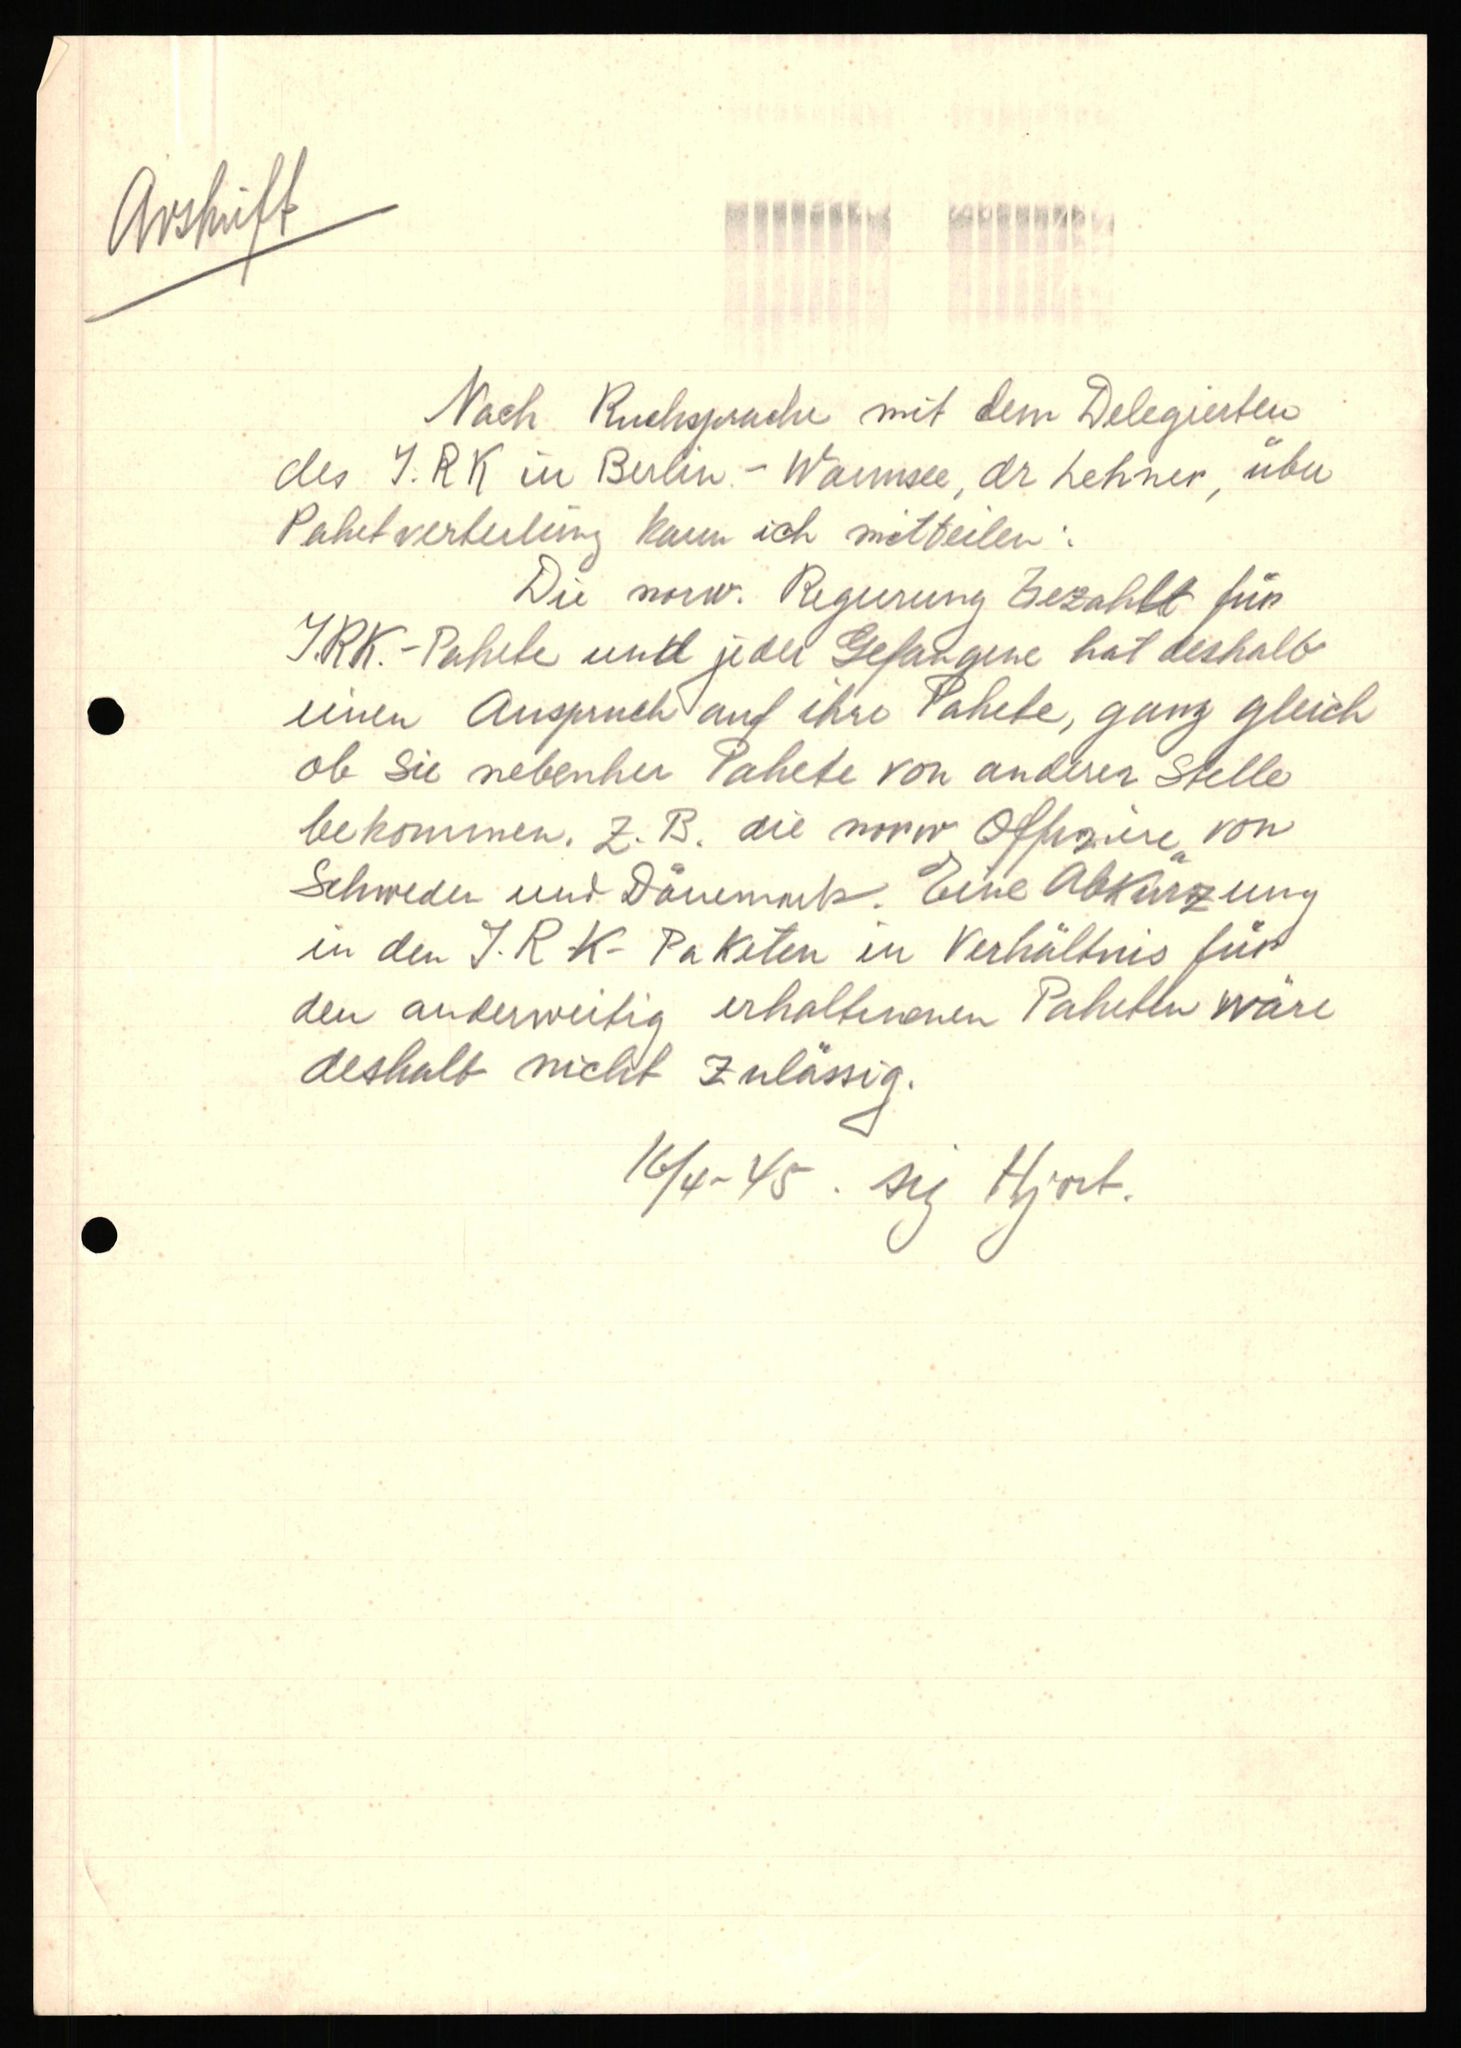 Avskrift
Nach Rucksprache mit dem Delegierten
des I.R K in Berlin - Wannsee, dr Lehner, über
Paketverteilung kann ich mitteilen:
Die norw. Regierung bezahlt für
I.RK.-Pakete und jeder Gefangene hat deshalb
einen Anspruch auf ihre Pakete, ganz gleich
ob Sie nebenher Pakete von anderer Stelle
bekommen. Z. B. die norw. Offiziere von
Schweden und Dänemark. Eine Abkürzung
in den I.R-K- Paketen in Verhältnis für
den anderweitig erhaltenenen Paketen wäre
deshalb nicht zulässig.
16/4-45. sig Hjort.